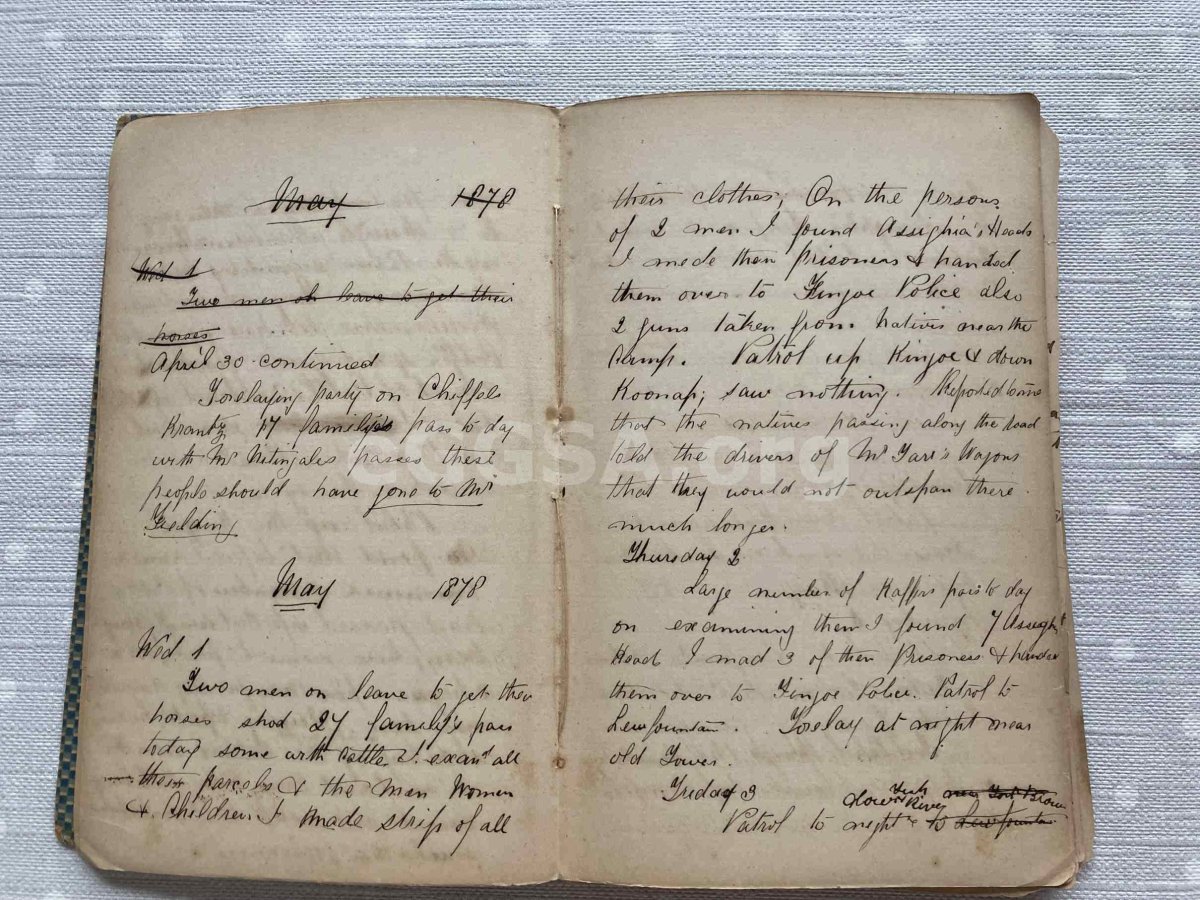 May 1878
Wed 1
Two men on leave to get their
horses
April 30 continued
Forelaying party on Chiffels
Krantz, 17 family's pass to day
with Mr Nitingales passes these
people should have gone to Mr
Fielding
May 1878
Wed 1
Two men on leave to get their
horses shod 27 family's pass
today some with cattle I exam'd all
their parcels & the men Women
& Children I made strip of all
their clothes; On the persons
of 2 men I found Assighia's Heads
I mede then prisoners & handed
them over to Finjoe Police also
2 guns taken from natives near the
Camp. Patrol up Kinjoe & down
Koonap; saw nothing. Reported to me
that the natives passing along the road
told the drivers of Mr Yarr's Wagons
that they would not outspan there
much longer.
Thursday 2
Large number of Kaffirs pass to day
on examining them I found 7 Assighi
Head I mad 3 of then Prisoners &
them over to Finjoe Police. Patrol to
Leeufountain. Forelay at night near
old Tower.
Friday 3
down Fish River near Fort Brown
Patrol to night & to Leeufountain
ECGSA.org